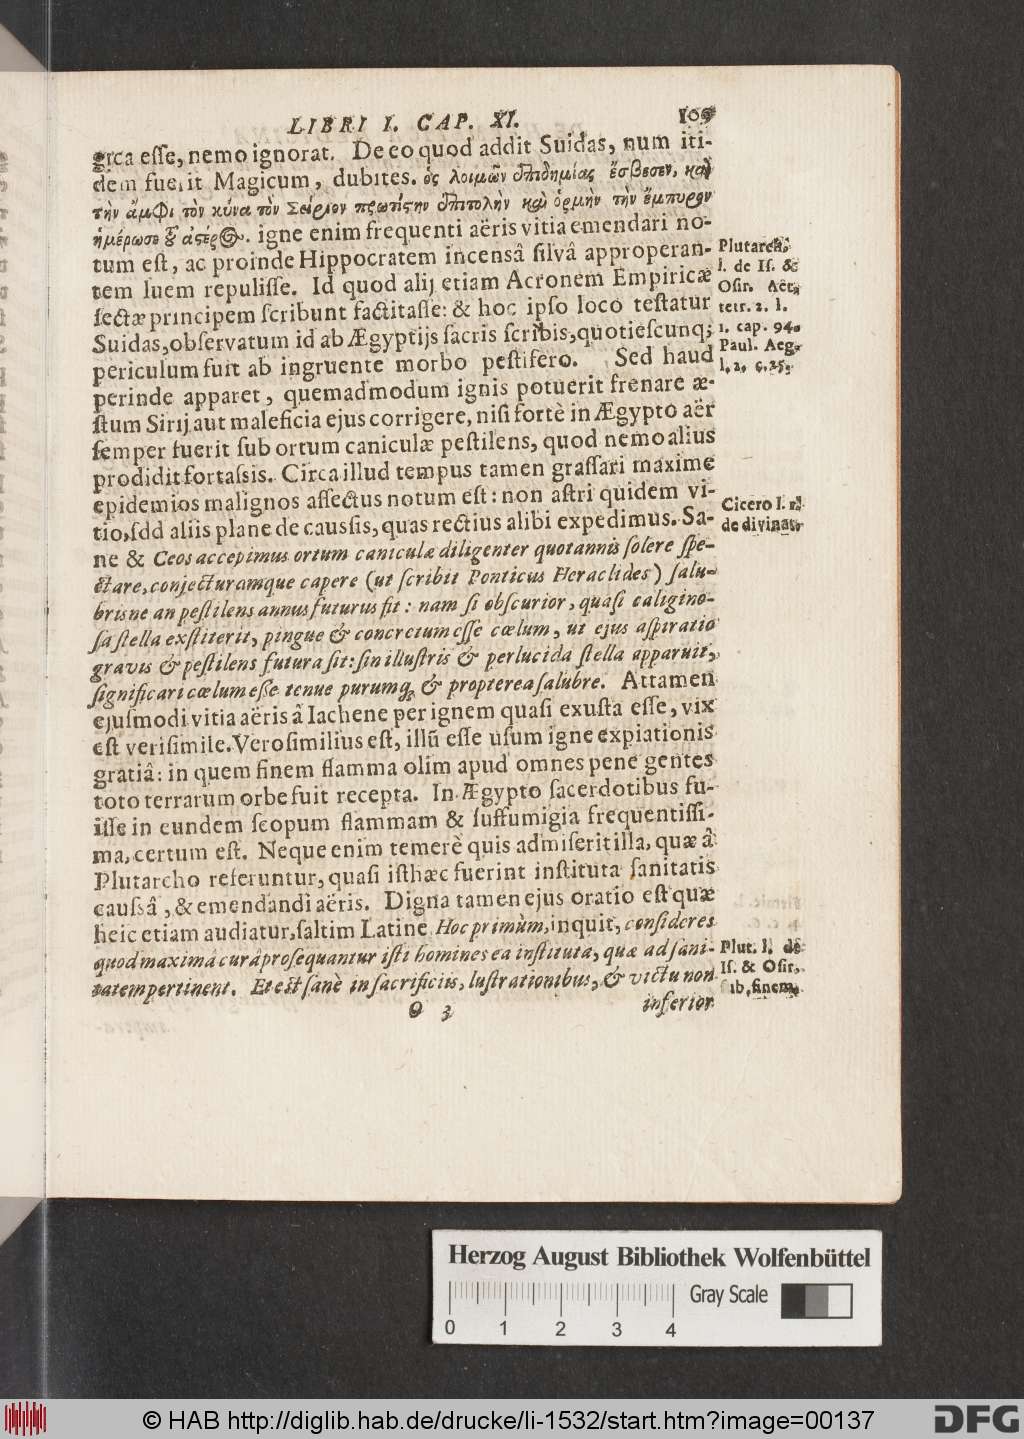 LIBRI I. CAP. XI. 109
girca eſſe, nemo ignorat. De eo quod addit Suidas, num iti-
dem fuerit Magicum, dubites. ὁς λοιμῶν ἐπιδημίας ἔσβεσεν, καὶ
τὴν ἀμφὶ τὸν κύνα τὸν Σείριον πρωτίςην ἐπιτολὴν καὶ ὁρμὴν τὴν ἔμπυρον
ἡμέρωσε ȣ͂ ἀςέρ⊙. igne enim frequenti aëris vitia emendari no-
tum eſt, ac proinde Hippocratem incensâ ſilvâ approperan-
tem luem repuliſſe. Id quod alij etiam Acronem Empiricæ
ſectæ principem ſcribunt factitaſſe: & hoc ipſo loco teſtatur
Suidas, obſervatum id ab Ægyptijs ſacris ſcribis, quotieſcunq;
periculum fuit ab ingruente morbo peſtifero. Sed haud
perinde apparet, quemadmodum ignis potuerit frenare æ-
ſtum Sirij aut maleficia ejus corrigere, niſi fortè in Ægypto aër
ſemper fuerit ſub ortum caniculæ peſtilens, quod nemo alius
prodidit fortaſsis. Circa illud tempus tamen graſſari maxime
epidemios malignos affectus notum eſt: non aſtri quidem vi-
tio, ſdd aliis plane de cauſsis, quas rectius alibi expedimus. Sa-
ne & Ceos accepimus ortum caniculæ diligenter quotannis ſolere ſpe-
ctare, conjecturamque capere (ut ſcribit Ponticus Heraclides) ſalu-
brisne an peſtilens annus futurus ſit: nam ſi obſcurior, quaſi caligino-
ſa ſtella exſtiterit, pingue & concretum eſſe cœlum, ut ejus aſpiratio
gravis & peſtilens futura ſit: ſin illuſtris & perlucida ſtella apparuit,
ſignificari cœlum eſſe tenue purumq; & propterea ſalubre. Attamen
ejuſmodi vitia aëris â Iachene per ignem quaſi exuſta eſſe, vix
eſt veriſimile. Veroſimilius eſt, illũ eſſe uſum igne expiationis
gratiâ: in quem finem flamma olim apud omnes pene gentes
toto terrarum orbe fuit recepta. In Ægypto ſacerdotibus fu-
iſſe in eundem ſcopum flammam & ſuffumigia frequentiſſi-
ma, certum eſt. Neque enim temerè quis admiſerit illa, quæ â
Plutarcho referuntur, quaſi iſthæc fuerint inſtituta ſanitatis
cauſsâ, & emendandi aëris. Digna tamen ejus oratio eſt quæ
heic etiam audiatur, ſaltim Latine. Hoc primùm, inquit, conſideres
quod maxima curâ proſequantur iſti homines ea inſtituta, quæ ad ſani-
tatem pertinent. Et eſt ſanè in ſacrificiis, luſtrationibus, & victu non
O 3 inferior
Plutarch.
l. de Iſ. &
Oſir. Aët.
tetr. 2. l.
1. cap. 94.
Paul. Aeg.
l. 2. c. 35.
Cicero l. 1.
de divinat.
Plut. l. de
Iſ. & Oſir.
ſub. finem.
Herzog August Bibliothek Wolfenbüttel
Gray Scale
0 1 2 3 4
© HAB http://diglib.hab.de/drucke/li-1532/start.htm?image=00137
DFG